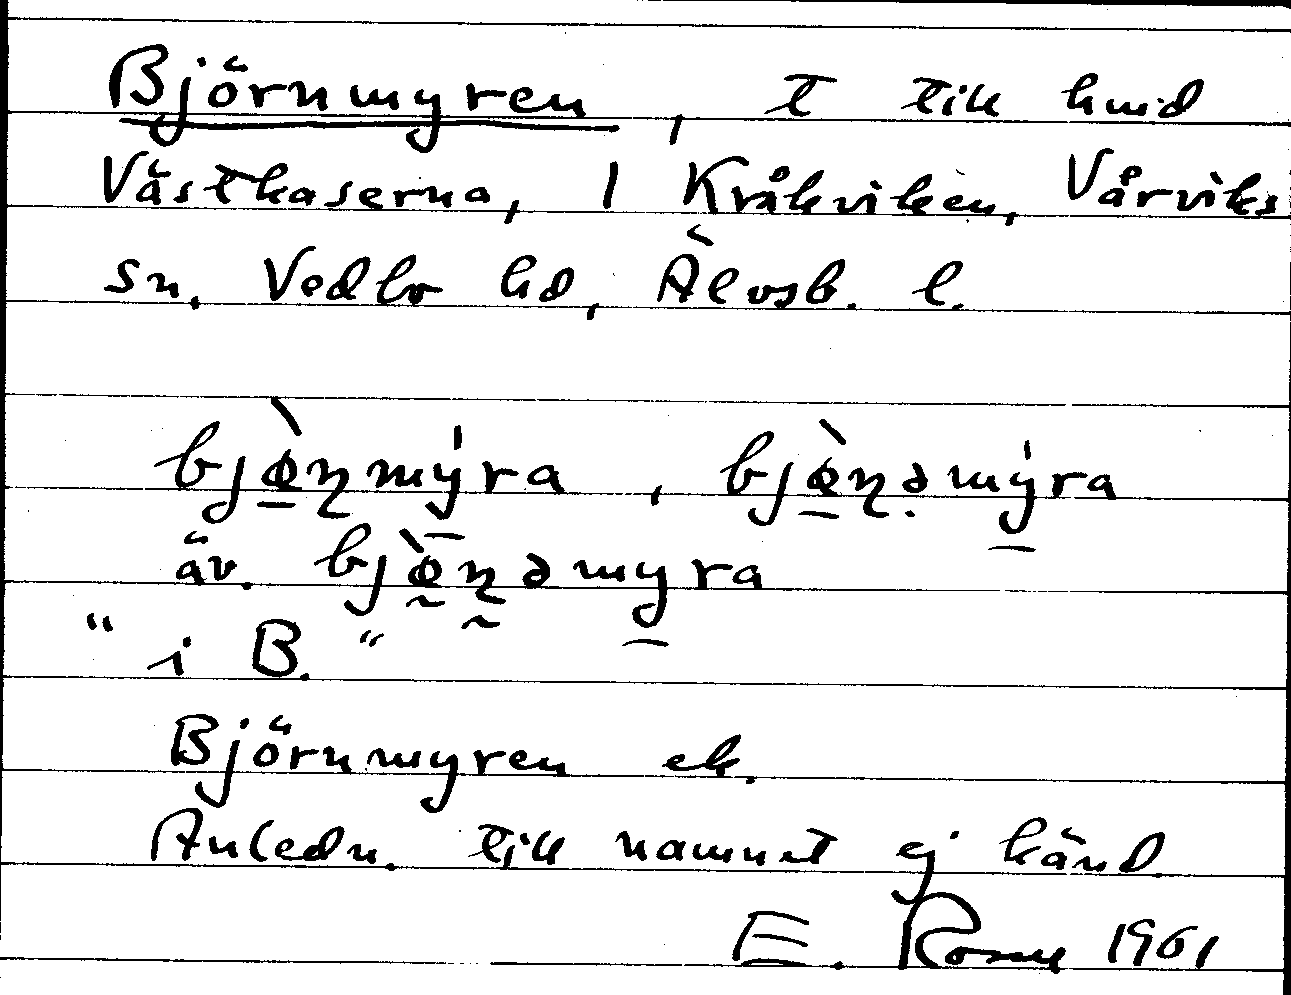 Björnmyren, t till hmd
Västkaserna, 1 Kråkviken, Vårviks
sn. Vedbo hd, Älvsb. l.
bjø̠̀ɳmý̠ra, bjø̠̀ɳ̠ə̣mý̠ra
äv. bjø̰̀ɳ̰əmy̠ra
"i B."
Björnmyren ek.
Anledn. till namnet ej känd.
E. 1961